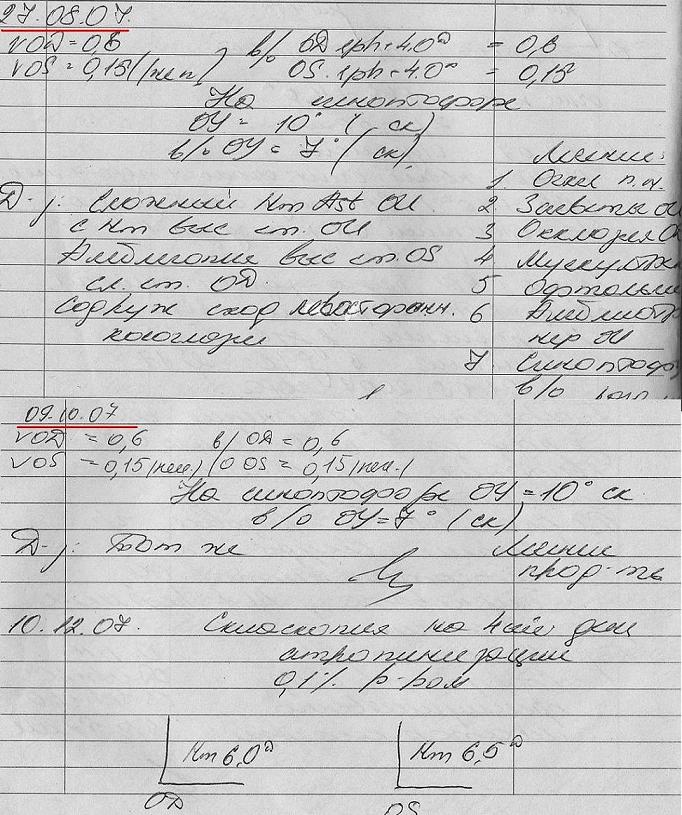 27.08.07.
VOD = 0,6 в/о OD sph + 4.0ᴰ = 0,6
VOS = 0,15 (/нец) OS. sph + 4.0ᴰ = 0,15
На синоптофоре
ОУ = 10° ( ск)
в/о ОУ = 7° ( ск)
Лечение:
D-j: Сложный Hm Ast OU
с Hm выс ст. OU
Амблиопия выс ст. OS
сл. ст. OD.
Содруж сход левосторонн.
косоглазие
1. Очки п.н.
2 Засветы OU
3 Окклюзия О
4
5 Офтальм
6
пер OU
7 Синоптофо
в/о
09.10.07
VOD = 0,6 в/ OD = 0,6
VOS = 0,15 /нец.) /О OS = 0,15 /нец./
На синоптофоре ОУ = 10° ск
в/о ОУ = 7° (ск)
D-j: Тот же
Лечение
прод-ть
10.12.07. Скиаскопия на 4ый день
атропинизации
0,1% р-ром
Hm 6,0ᴰ Hm 6,5ᴰ
OD OS